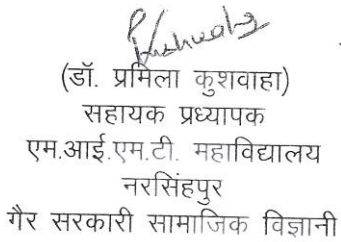 (डॉ. प्रमिला कुशवाहा)
सहायक प्रध्यापक
एम.आई.एम.टी. महाविद्यालय
नरसिंहपुर
गैर सरकारी सामाजिक विज्ञानी